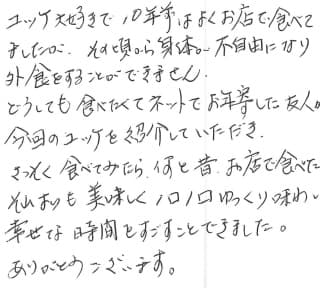 ユッケ大好きで10年前はよくお店で食べて
ましたが、その頃から身体が不自由になり
外食をすることができません。
どうしても食べたくてネットでお年寄した友人が
今回のユッケを紹介していただき、
さっそく食べてみたら、何と昔、お店で食べた
それよりも美味しく1口1口ゆっくり味わい
幸せな時間をすごすことできました。
ありがとうございます。